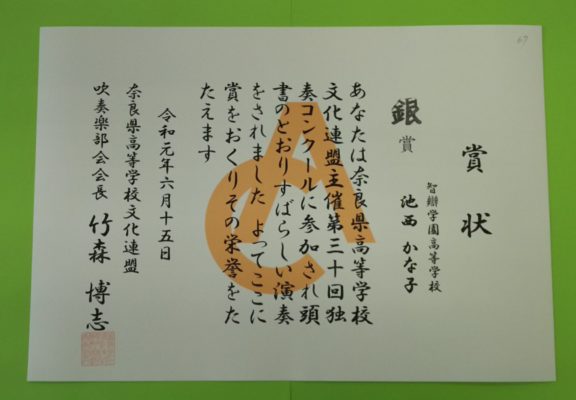 67
賞状
智辯学園高等学校
池西 かな子
銀賞
あなたは奈良県高等学校
文化連盟主催第三十回独
奏コンクールに参加され頭
書のとおりすばらしい演奏
をされました よってここに
賞をおくりその栄誉をた
たえます
令和元年六月十五日
奈良県高等学校文化連盟
吹奏楽部会会長 竹森 博志